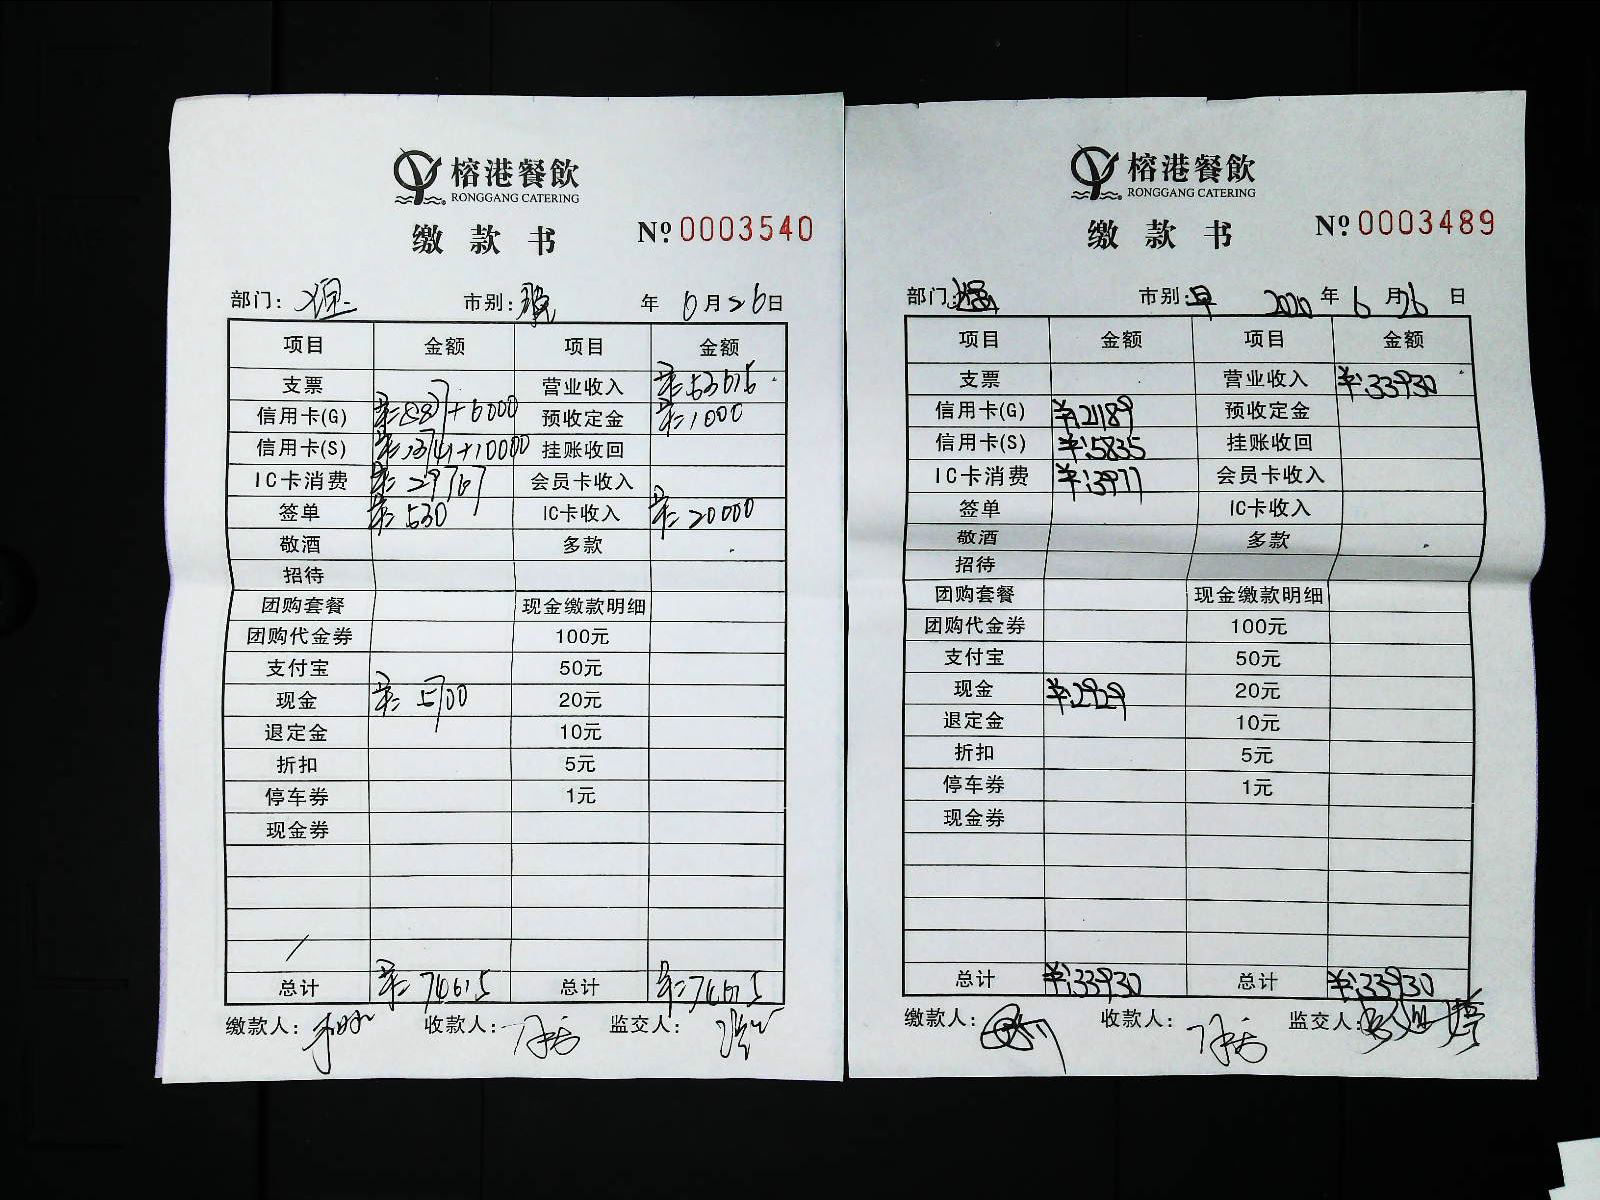 榕港餐飲
RONGGANG CATERING
缴款书 Nº 0003540
部门: 市别: 晚 年 6月26日
项目 金额 项目 金额
支票 营业收入 ¥:53615
信用卡(G) +6000 预收定金 ¥:1000
信用卡(S) +10000 挂账收回
IC卡消费 ¥:29767 会员卡收入
签单 ¥:530 IC卡收入 ¥:20000
敬酒 多款
招待
团购套餐 现金缴款明细
团购代金券 100元
支付宝 50元
现金 ¥:5700 20元
退定金 10元
折扣 5元
停车券 1元
现金券
总计 ¥:74615 总计 ¥:74615
缴款人: 收款人: 监交人:
榕港餐飲
RONGGANG CATERING
缴款书 Nº 0003489
部门: 市别: 早 2020 年 6 月 26 日
项目 金额 项目 金额
支票 营业收入 ¥:33930
信用卡(G) ¥:21189 预收定金
信用卡(S) ¥:5835 挂账收回
IC卡消费 ¥:3977 会员卡收入
签单 IC卡收入
敬酒 多款
招待
团购套餐 现金缴款明细
团购代金券 100元
支付宝 50元
现金 ¥:2929 20元
退定金 10元
折扣 5元
停车券 1元
现金券
总计 ¥:33930 总计 ¥:33930
缴款人: 收款人: 监交人: